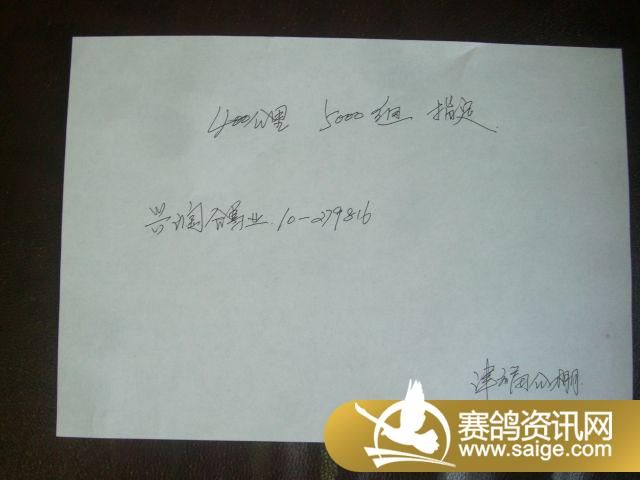 400公里 5000组 指定
兴润鸽业.10-279816
津福公棚
赛鸽资讯网
www.saige.com